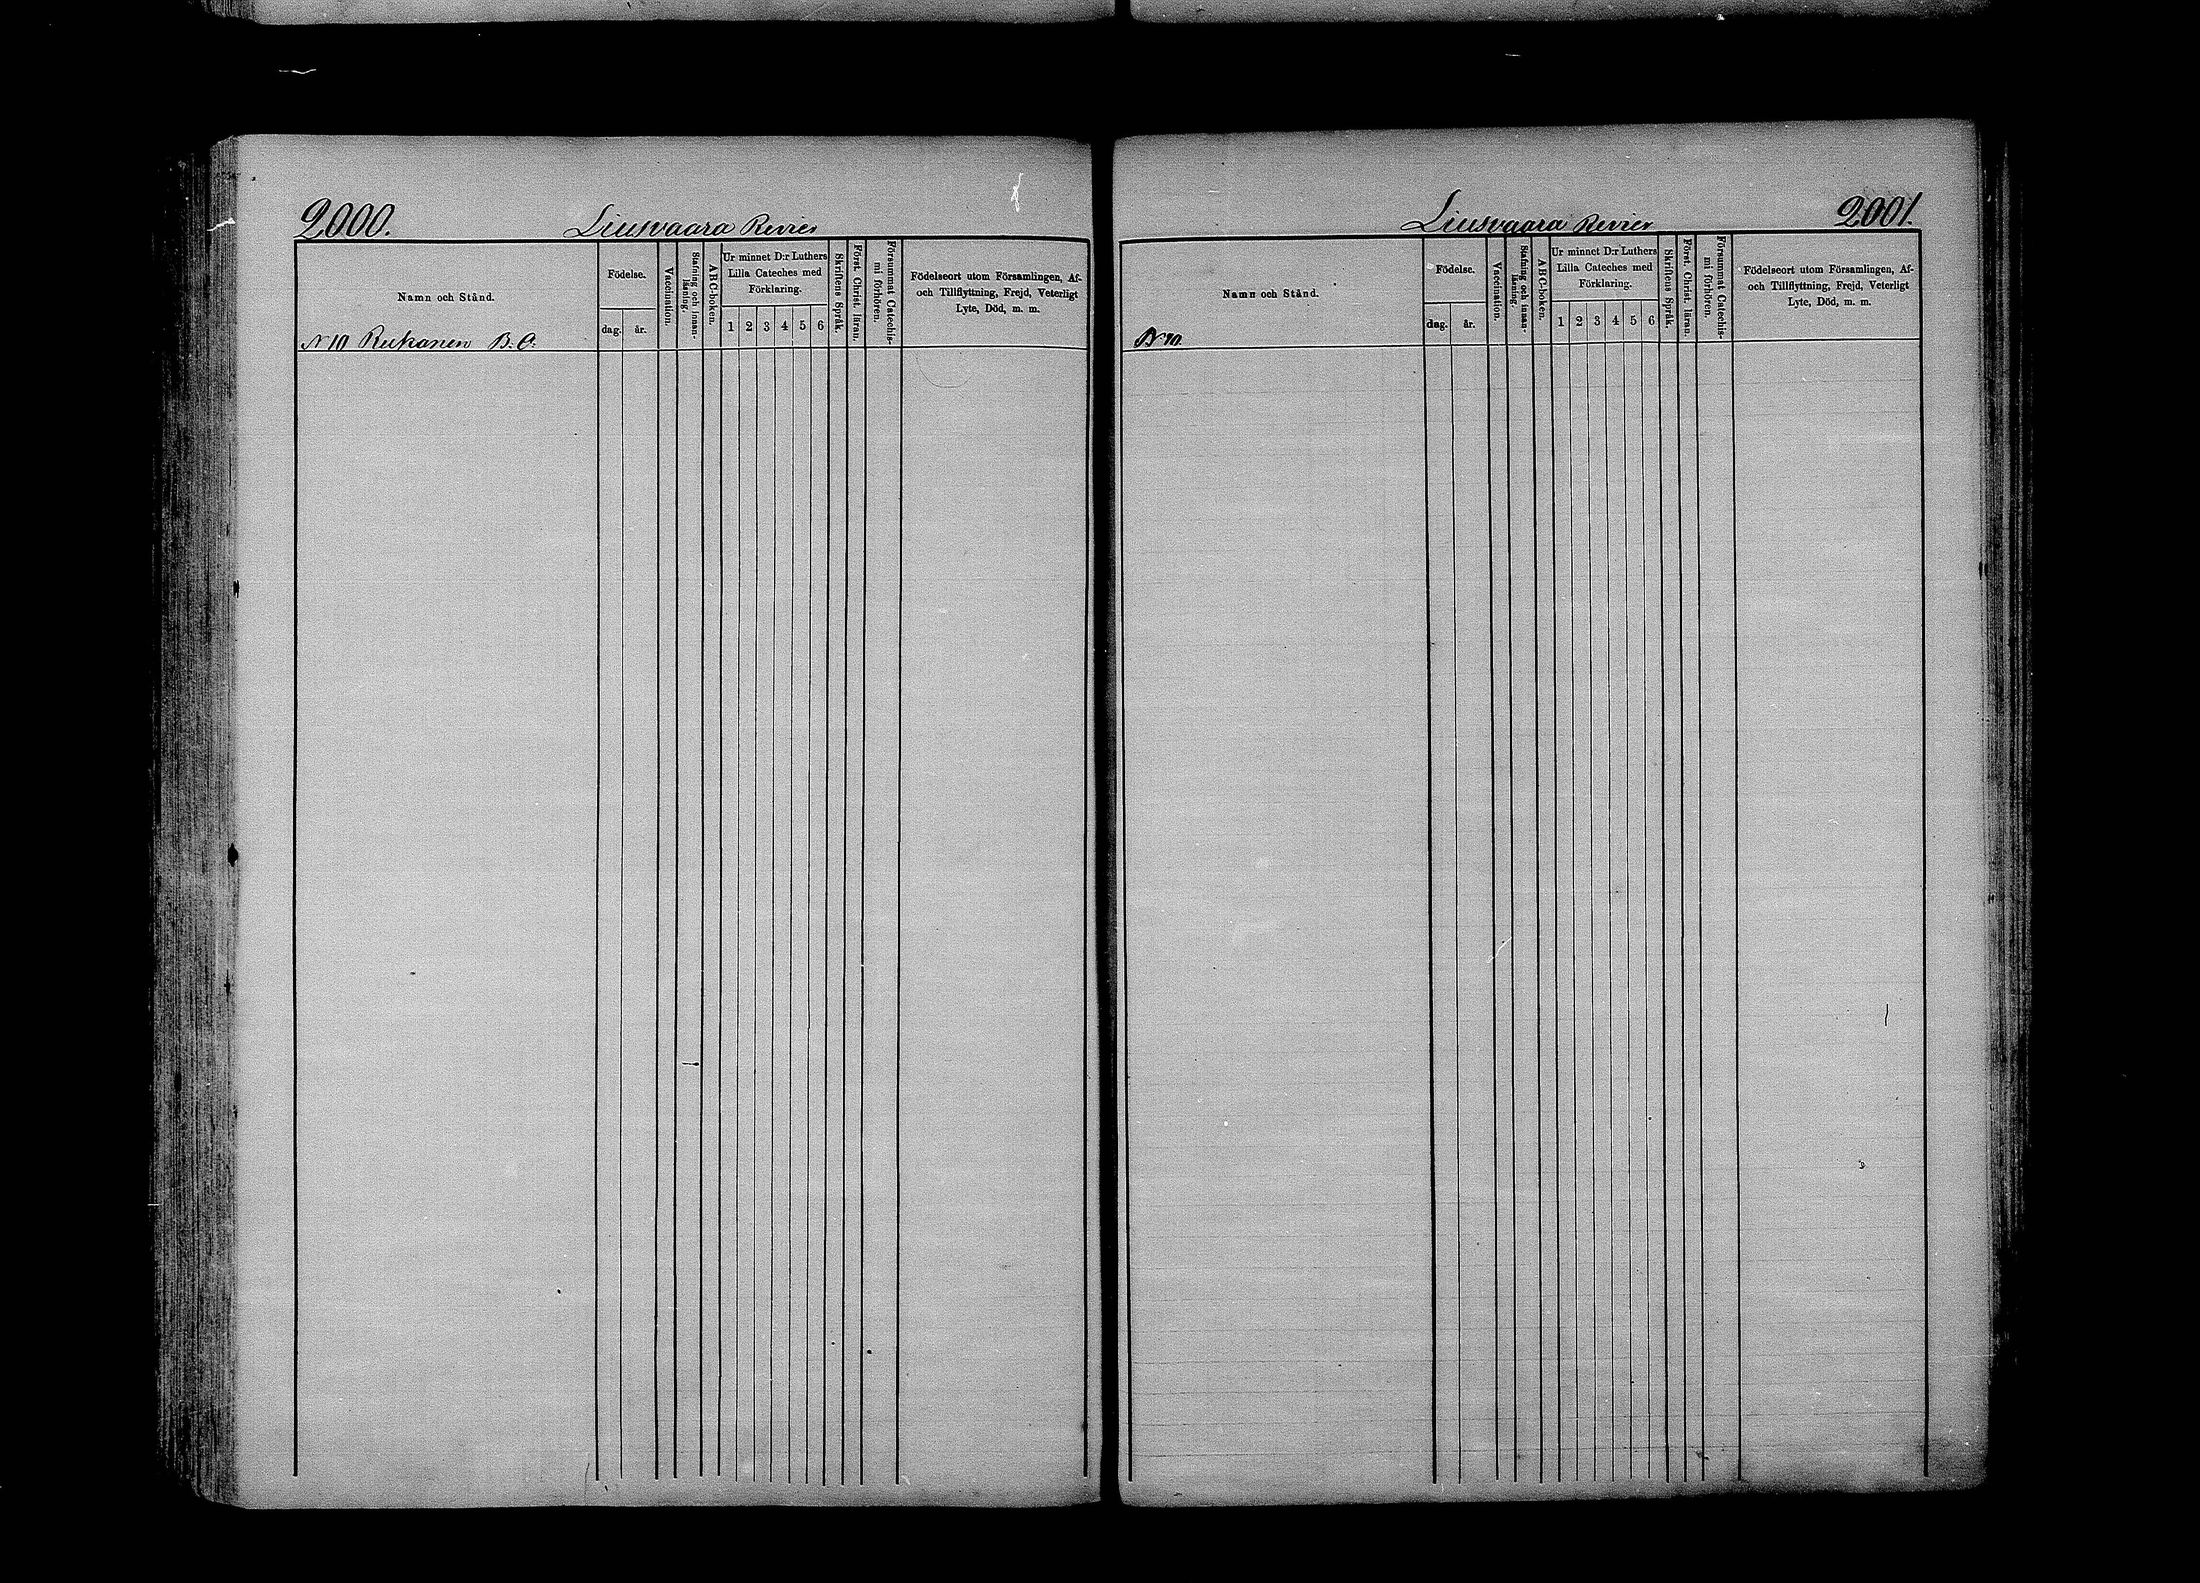 2000.
Liusvaara Revier
Namn och Stånd.
Födelse.
dag.
år.
Vaccination.
Stafning och innan-
läsning.
ABC-boken.
Ur minnet D:r Luthers
Lilla Cateches med
Förklaring.
1 2 3 4 5 6
Skriftens Språk.
Först. Christ. läran.
Försummat Catechis-
mi förhören.
Födelseort utom Församlingen, Af-
och Tillflyttning, Frejd, Veterligt
Lyte, Död, m. m.
N 10 Reikanen B. C.
Liusvaara Revier
2001.
Namn och Stånd.
Födelse.
dag.
år.
Vaccination.
Stafning och innan-
läsning.
ABC-boken.
Ur minnet D:r Luthers
Lilla Cateches med
Förklaring.
1 2 3 4 5 6
Skriftens Språk.
Först. Christ. läran.
Försummat Catechis-
mi förhören.
Födelseort utom Församlingen, Af-
och Tillflyttning, Frejd, Veterligt
Lyte, Död, m. m.
N 10.